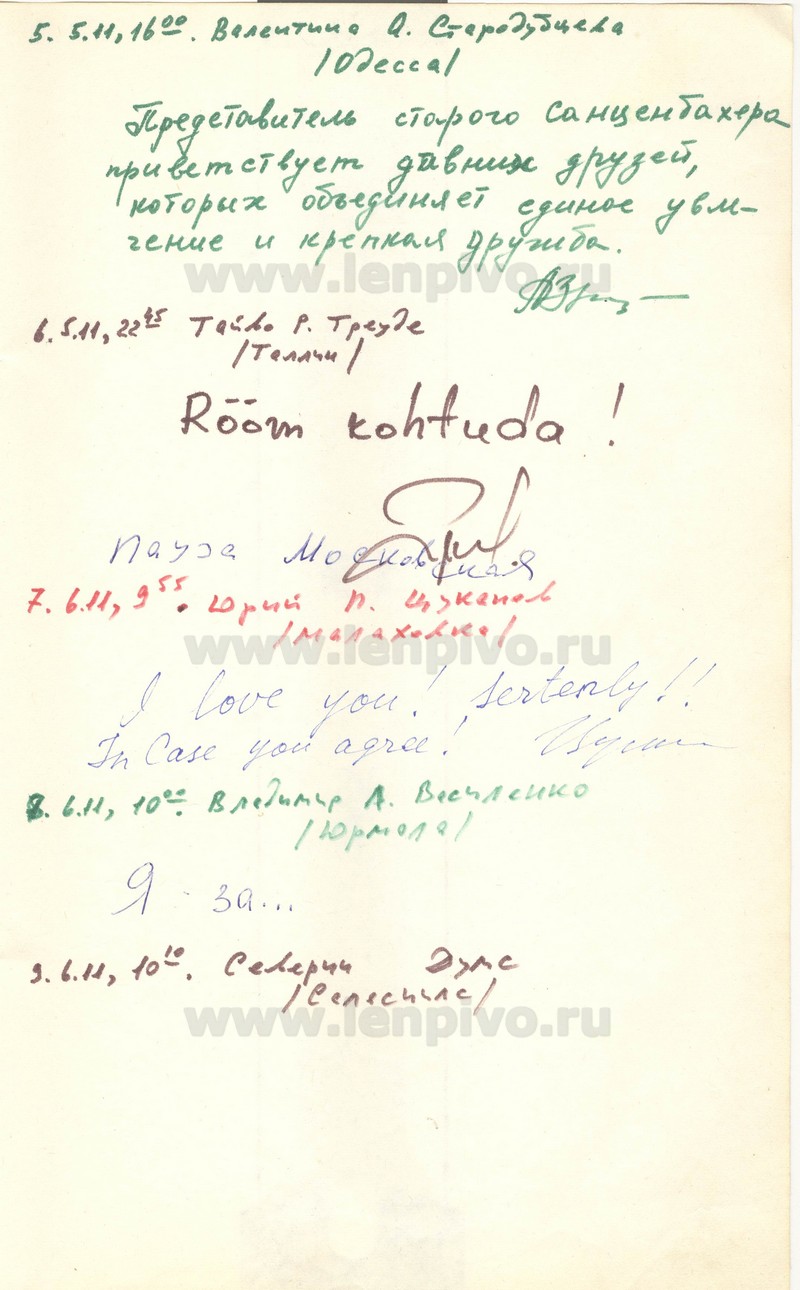 5. 5.11, 16⁰⁰. Валентина А. Стародубцева
/Одесса/
Представитель старого Санценбахера
приветствует давних друзей,
которых объединяет единое увле-
чение и крепкая дружба.
www.lenpivo.ru
6. 5.11, 22⁴⁵ Тайво Р. Треуде
/Таллин/
Rõõm kohtuda!
пауза Московская
7. 6.11, 9⁵⁵. Юрий П. Цуканов
/Малаховка/
www.lenpivo.ru
I love you! Sertenly!!
In Case you agree!
8. 6.11, 10⁰⁰. Владимир А. Василенко
/Юрмала/
Я - за...
9. 6.11, 10¹⁰. Северин Думс
/Селеспилс/
www.lenpivo.ru